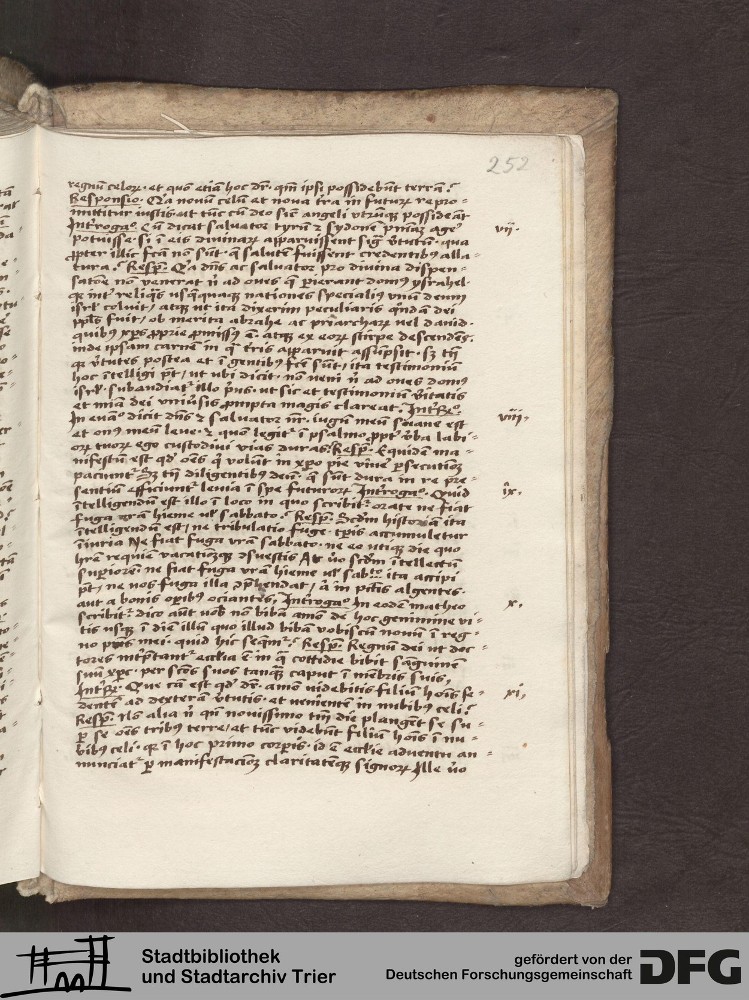 252
regnū celoꝝ · et quō etiā hoc dr̄ · qm̄ ipsi possidebūt terrā ?
Responsio · Q'a nouū celū et noua tr̄a in futurꝝ repro-
mittitur iustis · ut tūc cū deo sicut angeli utrūqꝫ possideāt
Int'roga° · Cū dicat saluator tyrū ⁊ sydonē p'mā age' vij ·
potuisse · si ī eis diuinarꝝ apparuissent sig v'tutū · qua
ꝓpter illic fcā nō sūt · q' salutē fuissent credentibꝰ alla-
tura ? Resp̄ · Q'a dn̄s ac saluator pro diuina dispen-
satōe nō venerat n' ad oues q' perierant domꝰ ysrahel
qꝫ int' reliqˢ usqꝫquaqꝫ nationes specialiꝰ vnū deum
isrl' coluit / atqꝫ ut ita dixerim peculiaris quidam dei
ppl's fuit / ob merita abrahe ac priarcharꝝ uel dauid ·
quibꝰ xp̄s ꝓprie ꝓmissꝰ ē · atqꝫ ex eorꝝ stirpe descendens ·
inde ipsam carnē in q' tr̄is apparuit assūpsit · sꝫ tn̄
qꝫ v'tutes postea et ī gentibꝰ fc̄e sūt / ita testimoniū
hoc ītelligi pt̄ / ut ubi dicit · nō ueni n' ad oues domꝰ
isrl' · subaudiat' illo pˢus · ut sic et testimoniū v'itatis
et mīa dei vniu'sis ꝓmpta magis clareat · Int'ro° ·
In euā° dicit dn̄s ⁊ saluator nr̄ · iugū meū suaue est viij ·
et onꝰ meū leue · ⁊ quō legit' ī psalmo ꝓpt' v'ba labi-
orꝝ tuorꝝ ego custodiui vias duras · Resp̄ · Equidem ma-
nifestū est qd' oēs q' volūt in xp̄o pie viue' persecutionē
paciunt' Sꝫ tn̄ diligentibꝰ deū · q' sūt dura in re pre-
sentiū efficiunt' leuia ī spe futurorꝝ Int'roga° · Quid ix ·
ītelligendū est illo ī loco in quo scribit' orate ne fiat
fuga vr̄a hieme uł sabbato ? Resp̄ · Scdm historiā ita
ītelligendū est / ne tribulatio fuge · tp̄ris accumuletur
īiuria Ne fiat fuga vr̄a sabbato · ne eo utiqꝫ die quo
hr̄e requiem vacationēqꝫ ꝯsuestis At v'o scdm ītellectū
superiorē · ne fiat fuga vr̄a hieme uł sab'to ita accipi
pt̄ / ne uos fuga illa ꝯp'hendat / a in pctis algentes ·
aut a bonis opibꝰ ociantes, Int'roga° In eodē matheo x ·
scribit' dico aūt uob' nō bibā amō de hoc genimine vi-
tis usqꝫ ī diē illū quo illud bibā vobiscū nouū ī reg-
no pris mei · quid hic seqm' ? Resp̄ · Regnū dei ut doc-
tores int'ptant' eccl'ia ē in q' cottidie bibit sāguinem
suū xp̄c · per scōs suos tanqꝫ caput ī mēbris suis,
Int'ro · Que cā est qd' dr̄ · amō uidebitis filiū hoīs se- xi,
dentē ad dexterā v'tutis · et uenientē in nubibꝰ celi ?
Resp̄ · Nō alia n' qm̄ nouissimo tn̄ die plangēt se su-
per se oēs tribus terre / et tūc videbūt filiū hoīs ī nu-
bibꝰ celi · qꝫ ī hoc primo corpis · id ē eccl'ie aduentu an-
nunciat' per manifestacionē claritatēqꝫ signorꝝ Ille v'o
Stadtbibliothek
und Stadtarchiv Trier
gefördert von der
Deutschen Forschungsgemeinschaft
DFG